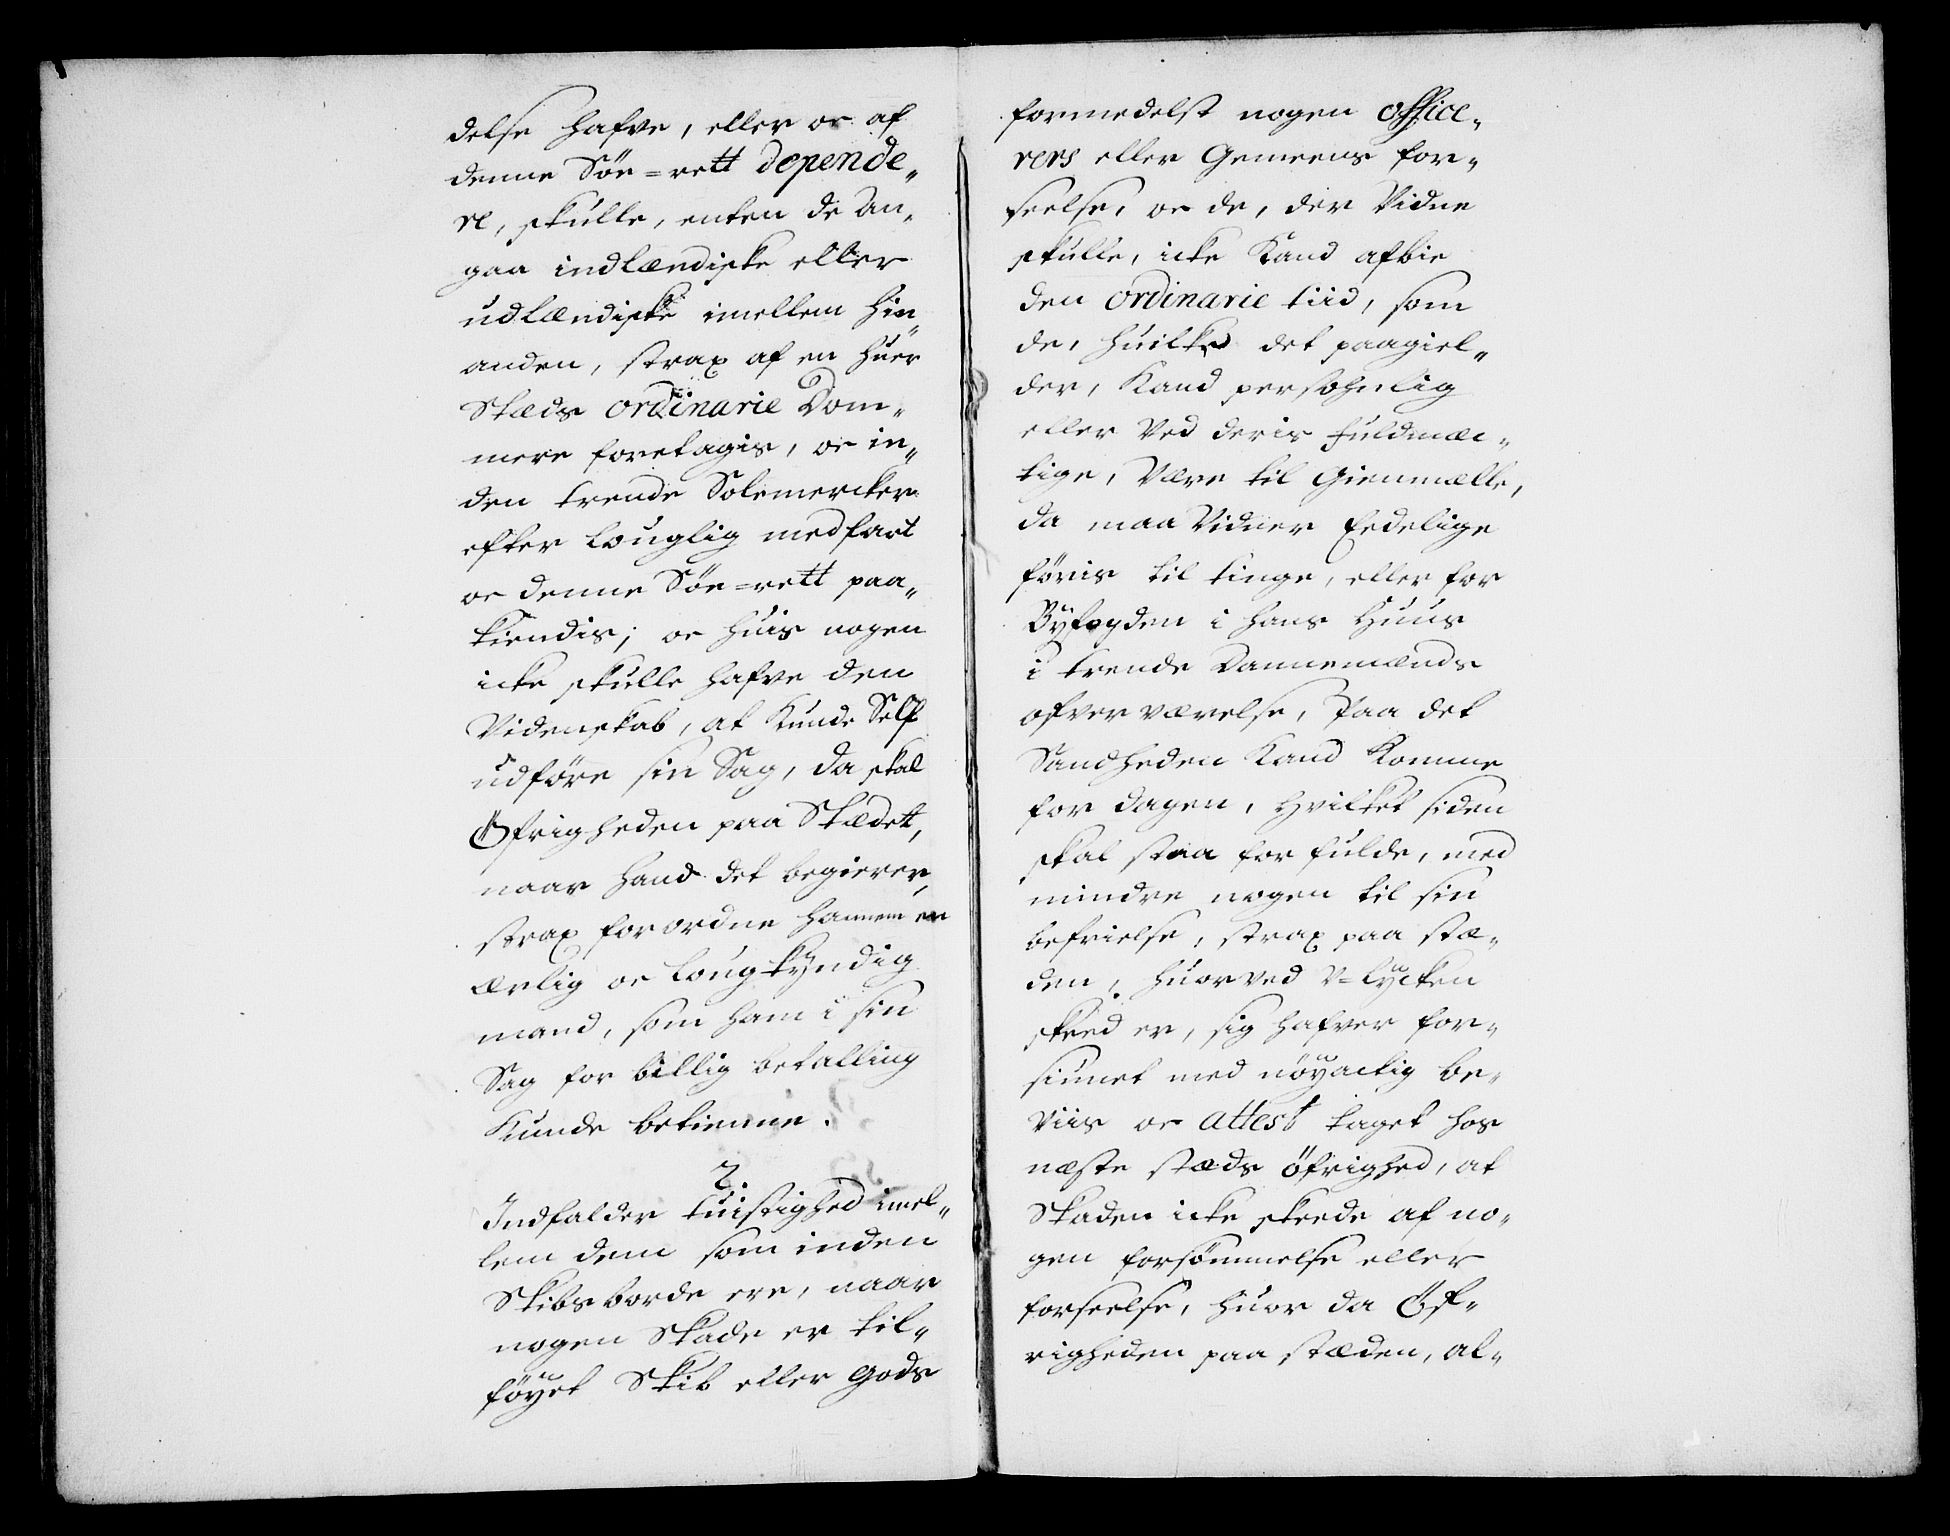 delse hafve, eller oc af
denne Söe=rett depende„
re, skulle, enten de An„
gaa indlændiske eller
udlændiske imellem hin„
anden, strax af en huer
Stæds ordinarie Dom„
mere foretagis, oc in„
den trende Solemercker
efter Louglig medfart
oc denne Söe=rett paa„
kiendis; oc huis nogen
icke skulle hafve den
Videnskab, at kunde Self
udföre sin Sag, da skal
Öfrigheden paa Stædet,
naar hand det begierer,
strax forordne hannem en
ærlig oc Lougkyndig
mand, som ham i sin
Sag for billig betalling
Kunde betienne.
2.
Indfalder tuistighed imel„
lem dem som inden
Skibsborde ere, naar
nogen Skade er til„
föyet Skib eller Gods
formedelst nogen office„
rers eller Gemeens for„
seelse, oc de, der Vidne
skulle, icke Kand afbie
den ordinarie tiid, som
de, huilke det paagiel„
der, Kand persohnlig
eller Ved deris fuldmæc„
tige, Være til Giemmælle,
da maa Vidner Eedelige
föris til tinge, eller for
Byfogden i hans Huus
i trende Dannemænds
ofverværelse, Paa det
Sandheden Kand Komme
for dagen, hvilket siden
skal staa for fulde, med
mindre nogen til sin
befrielse, strax paa stæ„
den, huorved V=lycken
skeed er, sig hafver for„
siunet med nöyactig be„
viis oc attest taget hos
næste stæds Öfrighed, at
Skaden icke skeede af no„
gen forsömmelse eller
forseelse, huor da Öf„
righeden paa stæden, al„